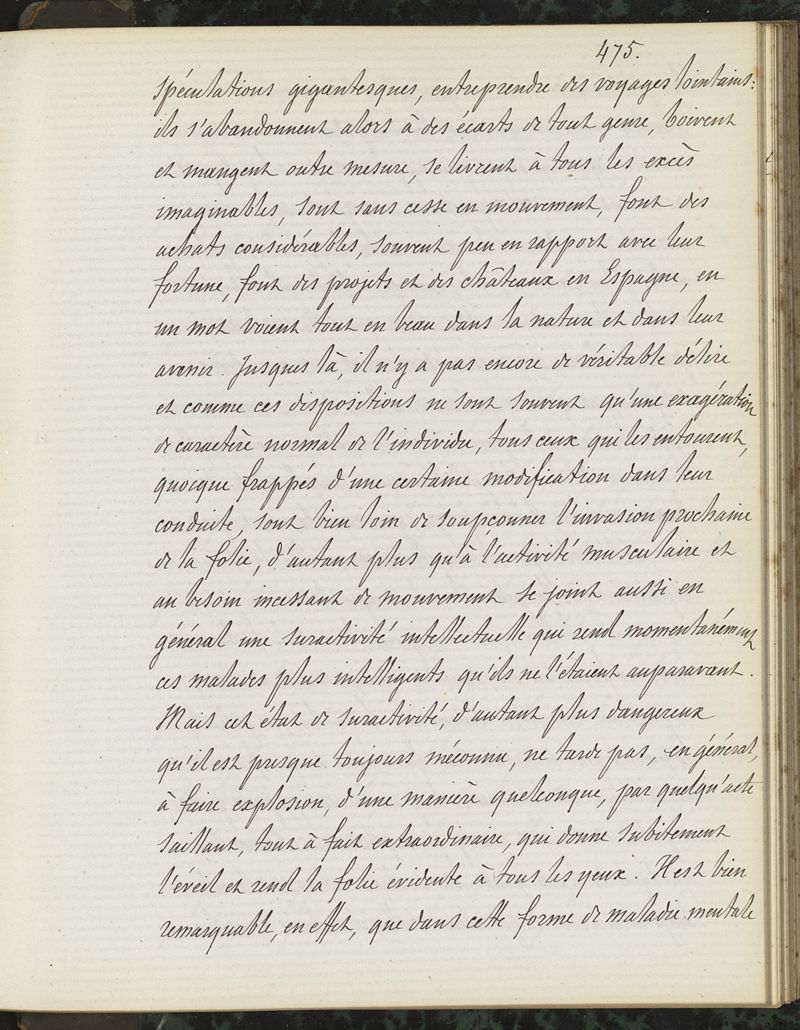 475.
spéculations gigantesques, entreprendre des voyages lointains:
ils s'abandonnent alors à des écarts de tout genre, boivent
et mangent outre mesure, se livrent à tous les excès
imaginables, sont sans cesse en mouvement, font des
achats considérables, souvent peu en rapport avec leur
fortune, font des projets et des châteaux en Espagne, en
un mot voient tout en beau dans la nature et dans leur
avenir. Jusques là, il n'y a pas encore de véritable délire
et comme ces dispositions ne sont souvent qu'une exagération
de caractère normal de l'individu, tous ceux qui les entourent,
quoique frappés d'une certaine modification dans leur
conduite, sont bien loin de soupçonner l'invasion prochaine
de la folie, d'autant plus qu'à l'activité musculaire et
au besoin incessant de mouvement se joint aussi en
général une suractivité intellectuelle qui rend momentanément
ces malades plus intelligents qu'ils ne l'étaient auparavant.
Mais cet état de suractivité, d'autant plus dangereux
qu'il est presque toujours méconnu, ne tarde pas, en général,
à faire explosion, d'une manière quelconque, par quelqu'acte
saillant, tout à fait extraordinaire, qui donne subitement
l'éveil et rend la folie évidente à tous les yeux. Il est bien
remarquable, en effet, que dans cette forme de maladie mentale